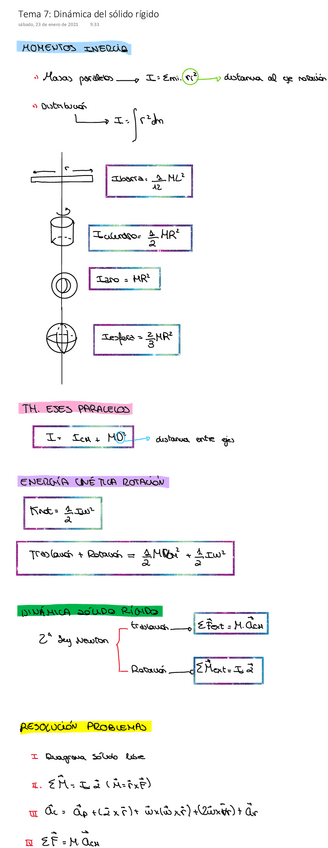 Tema 7: Dinámica del sólido rígido
sábado, 23 de enero de 2021 9:33
MOMENTOS INERCIA
Masas paralelas → I = Σmi·ri² → distancia al eje rotación
Distribución
→ I = ∫r²dm
r
Ibarra = 1/12 ML²
Icilindro = 1/2 MR²
Iaro = MR²
Iesfera = 2/3 MR²
TH. EJES PARALELOS
I = ICM + MD² → distancia entre ejes
ENERGÍA CINÉTICA ROTACIÓN
Krot = 1/2 Iω²
Traslación + Rotación = 1/2 + 1/2 Iω²
DINÁMICA SÓLIDO RÍGIDO
traslación → ΣFext = M·aCM
2ª ley Newton
Rotación → ΣMext = I·α
RESOLUCIÓN PROBLEMAS
I Diagrama sólido libre
II. ΣM = I·α (M = r×F)
III
IV ΣF = M aCM